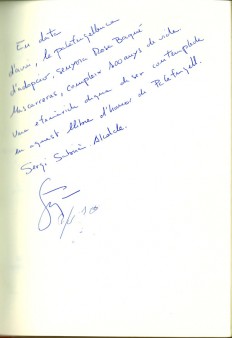 En data
d'avui, la palafrugellenca
d'adopció, senyora Rosa Bagué
Mascarreras, compleix 100 anys de vida
una efemèride digna de ser contemplada
en aquest llibre d'honor de Palafrugell.
Sergi Sabrià. Alcalde.